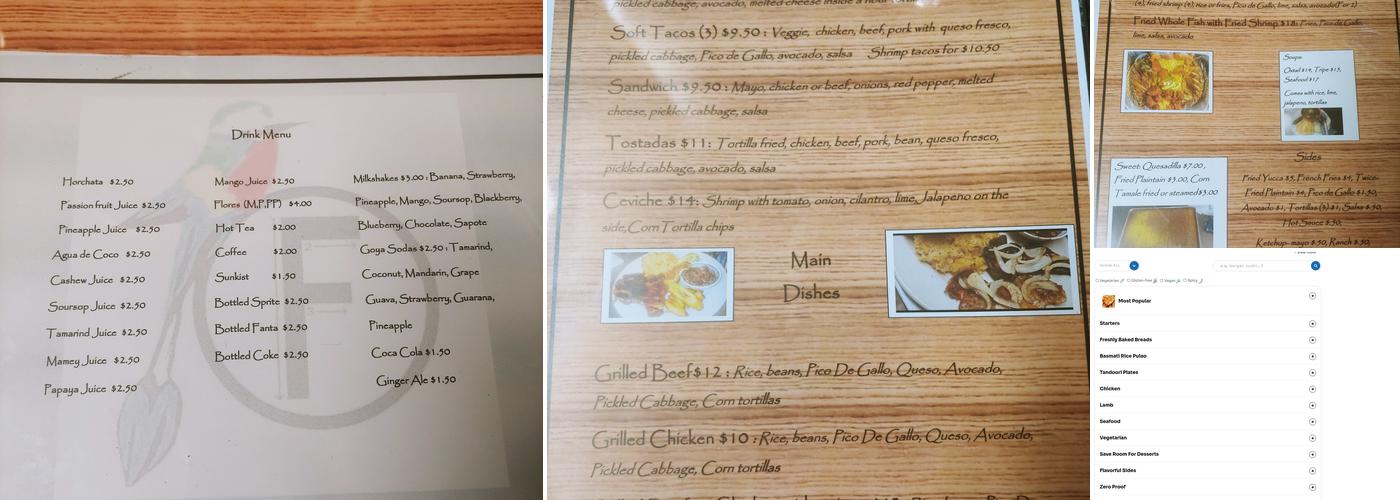 Drink Menu
Horchata $2.50
Passion fruit Juice $2.50
Pineapple Juice $2.50
Agua de Coco $2.50
Cashew Juice $2.50
Soursop Juice $2.50
Tamarind Juice $2.50
Mamey Juice $2.50
Papaya Juice $2.50
Mango Juice $2.50
Flores (M,P,PP) $4.00
Hot Tea $2.00
Coffee $2.00
Sunkist $1.50
Bottled Sprite $2.50
Bottled Fanta $2.50
Bottled Coke $2.50
Milkshakes $5.00 : Banana, Strawberry,
Pineapple, Mango, Soursop, Blackberry,
Blueberry, Chocolate, Sapote
Goya Sodas $2.50 : Tamarind,
Coconut, Mandarin, Grape
Guava, Strawberry, Guarana,
Pineapple
Coca Cola $1.50
Ginger Ale $1.50
pickled cabbage, avocado, melted cheese inside a
Soft Tacos (3) $9.50 : Veggie, chicken, beef, pork with queso fresco,
pickled cabbage, Pico de Gallo, avocado, salsa Shrimp tacos for $10.50
Sandwich $9.50 : Mayo, chicken or beef, onions, red pepper, melted
cheese, pickled cabbage, salsa
Tostadas $11: Tortilla fried, chicken, beef, pork, bean, queso fresco,
pickled cabbage, avocado, salsa
Ceviche $14: Shrimp with tomato, onion, cilantro, lime, Jalapeno on the
side, Corn Tortilla chips
Main
Dishes
Grilled Beef $12 : Rice, beans, Pico De Gallo, Queso, Avocado,
Pickled Cabbage, Corn tortillas
Grilled Chicken $10 : Rice, beans, Pico De Gallo, Queso, Avocado,
Pickled Cabbage, Corn tortillas
(4), fried shrimp (4), rice or fries, Pico de Gallo, lime, salsa, avocado(For 2)
Fried Whole Fish with Fried Shrimp $18: Fries, Pico de Gallo,
lime, salsa, avocado
Soups:
Oxtail $14, Tripe $13,
Seafood $17
Comes with rice, lime,
jalapeno, tortillas
Sweet: Quesadilla $7.00,
Fried Plaintain $5.00, Corn
Tamale fried or steamed $3.00
Sides
Fried Yucca $5, French Fries $4, Twice-
Fried Plaintain $4, Pico de Gallo $1.50,
Avocado $1, Tortillas (3) $1, Salsa $.50,
Hot Sauce $.50,
Ketchup- mayo $.50, Ranch $.50,
Vegetarian
Gluten-Free
Vegan
Spicy
Most Popular
Starters
Freshly Baked Breads
Basmati Rice Pulao
Tandoori Plates
Chicken
Lamb
Seafood
Vegetarian
Save Room For Desserts
Flavorful Sides
Zero Proof